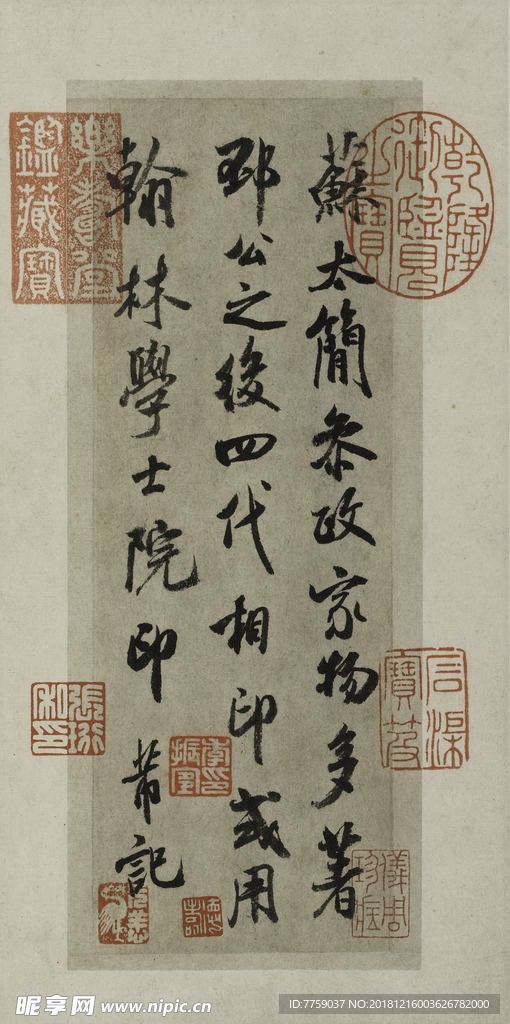 蘇太簡叅政家物多著
邳公之後四代相印或用
翰林學士院印 芾記
乾隆御覽之寶
樂善堂
鑑藏寶
張珩
私印
儀周
珍藏
昵享网 www.nipic.cn
ID:7759037 NO:20181216003626782000